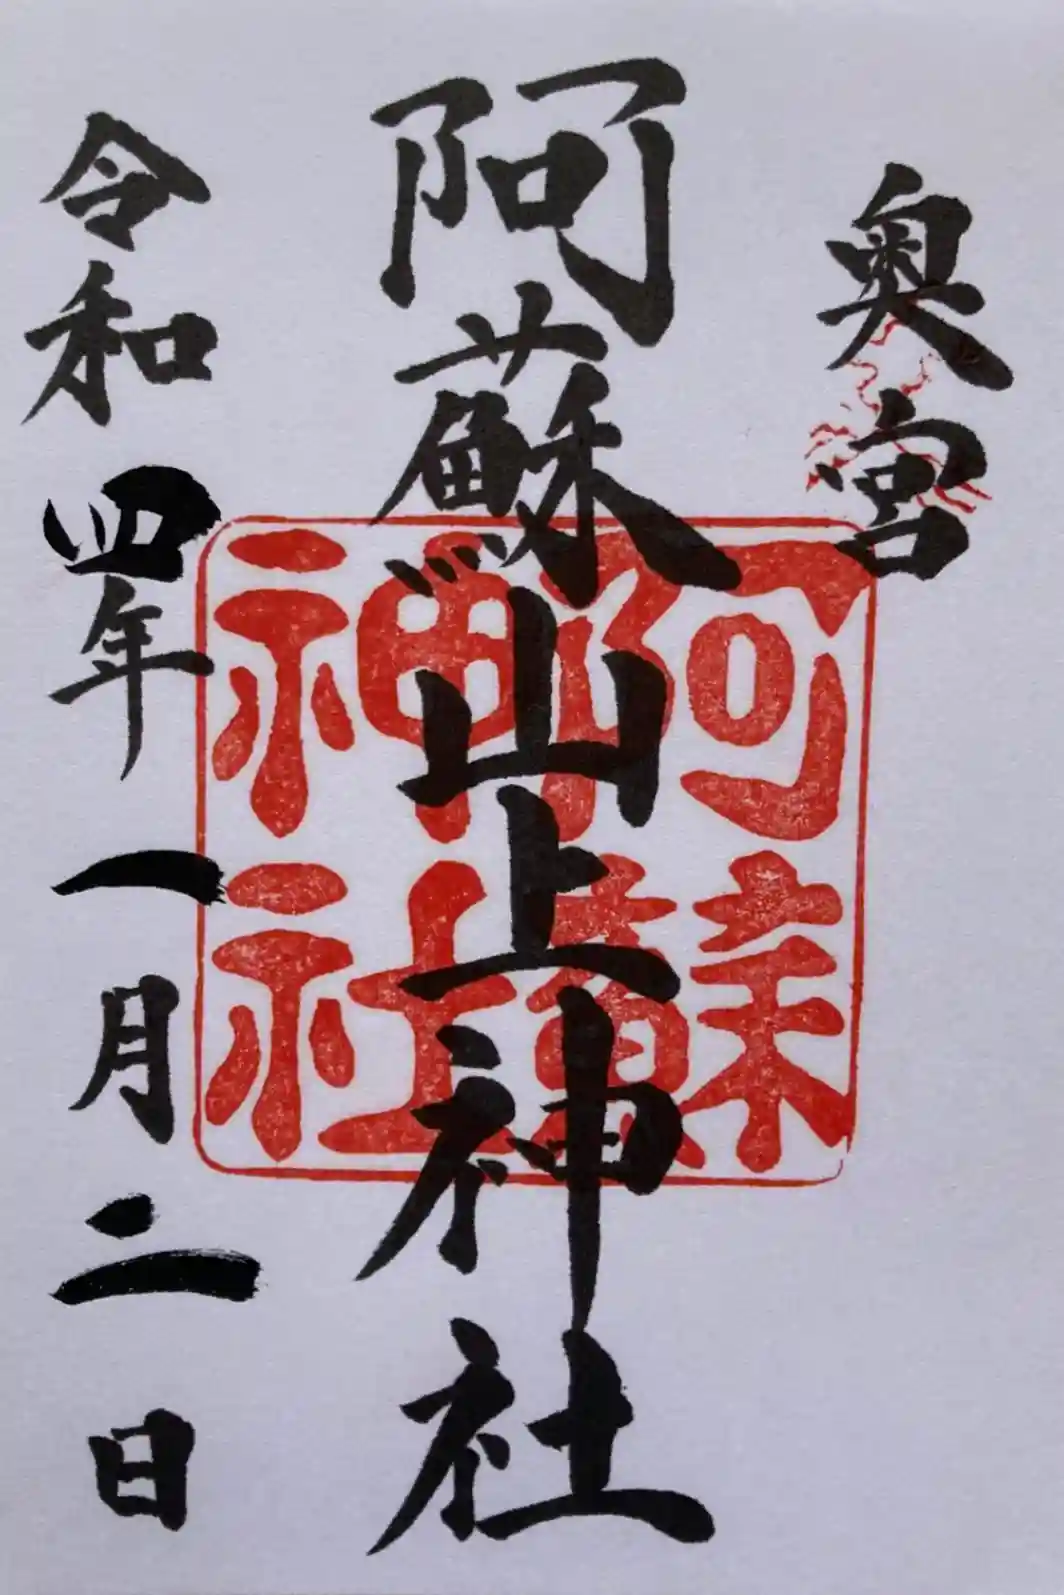 奥宮
阿蘇山上神社
令和四年一月二日
阿蘇
神社